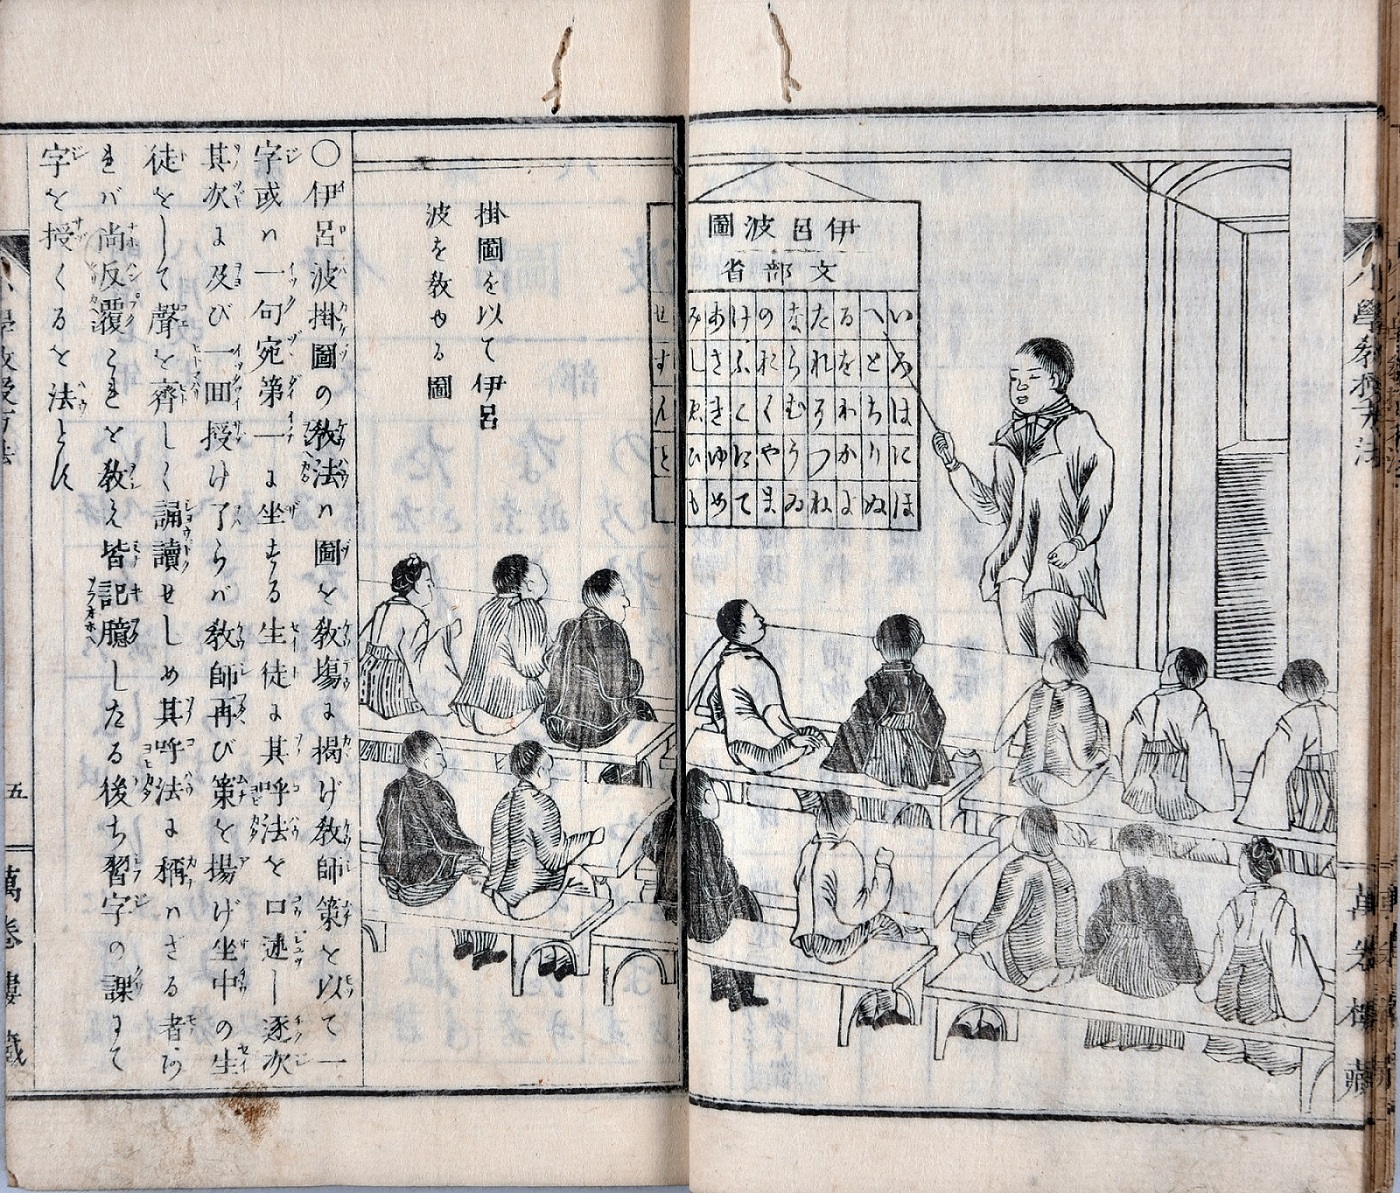 小學教授方法
萬卷樓藏
伊呂波圖
文部省
いろはにほ
へとちりぬ
るをわかよ
たれそつね
ならむうゐ
のおくやま
けふこえて
あさきゆめ
みしゑひも
せすん
掛圖を以て伊呂
波を教ゆる圖
〇伊呂波掛圖の教法ハ圖を教塲に掲げ教師策を以て一
字或ハ一句宛第一に坐する生徒に其呼法を口述し逐次
其次に及び一回授け了らバ教師再び策を揚げ坐中の生
徒をして聲を齊しく誦讀せしめ其呼法に稱ハざる者あ
れバ尚反覆これを教え皆記臆したる後ち習字の課にて
字を授くるを法とす
小學教授方法
五
萬卷樓藏